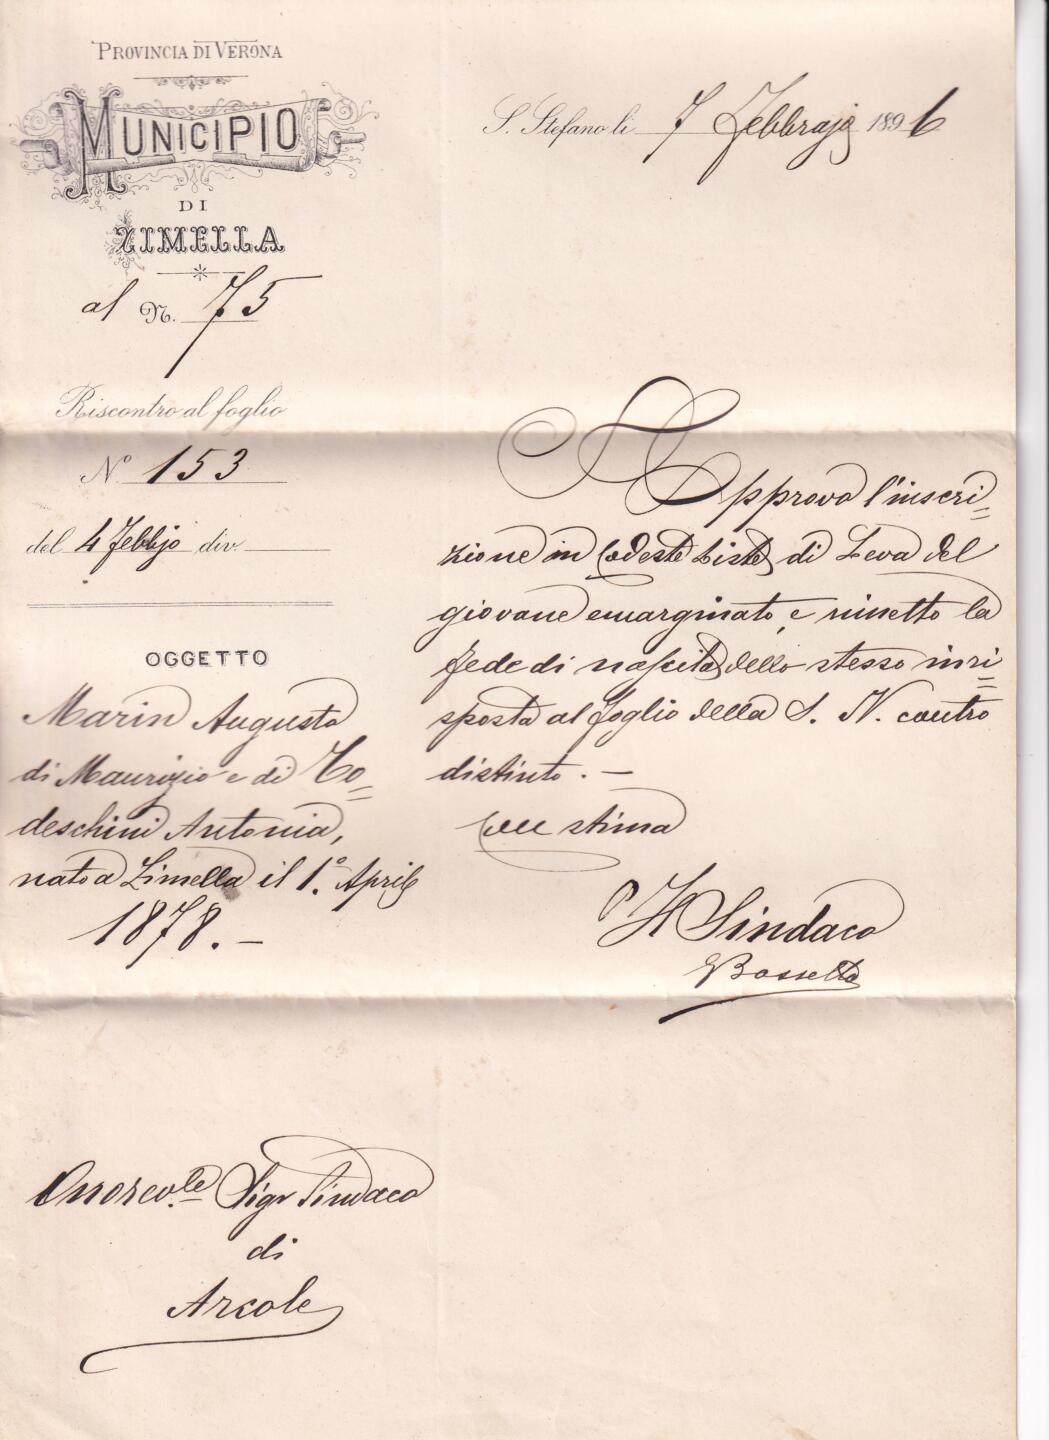 PROVINCIA DI VERONA
MUNICIPIO
DI
ZIMELLA
al N. 75
S. Stefano li 7 Febbrajo 1896
Riscontro al foglio
N.° 153
del 4 Febbjo div.
OGGETTO
Marin Augusto
di Maurizio e di To=
deschini Antonia,
nato a Zimella il 1°. Aprile
1878. —
Approvo l'inscri=
zione in codeste Liste di Leva del
giovane emarginato, e rimetto la
fede di nascita dello stesso in ri=
sposta al foglio della S. V. contro
distinto. —
Con stima
p Il Sindaco
Bossetto
Onorevo.le Sigr Sindaco
di
Arcole